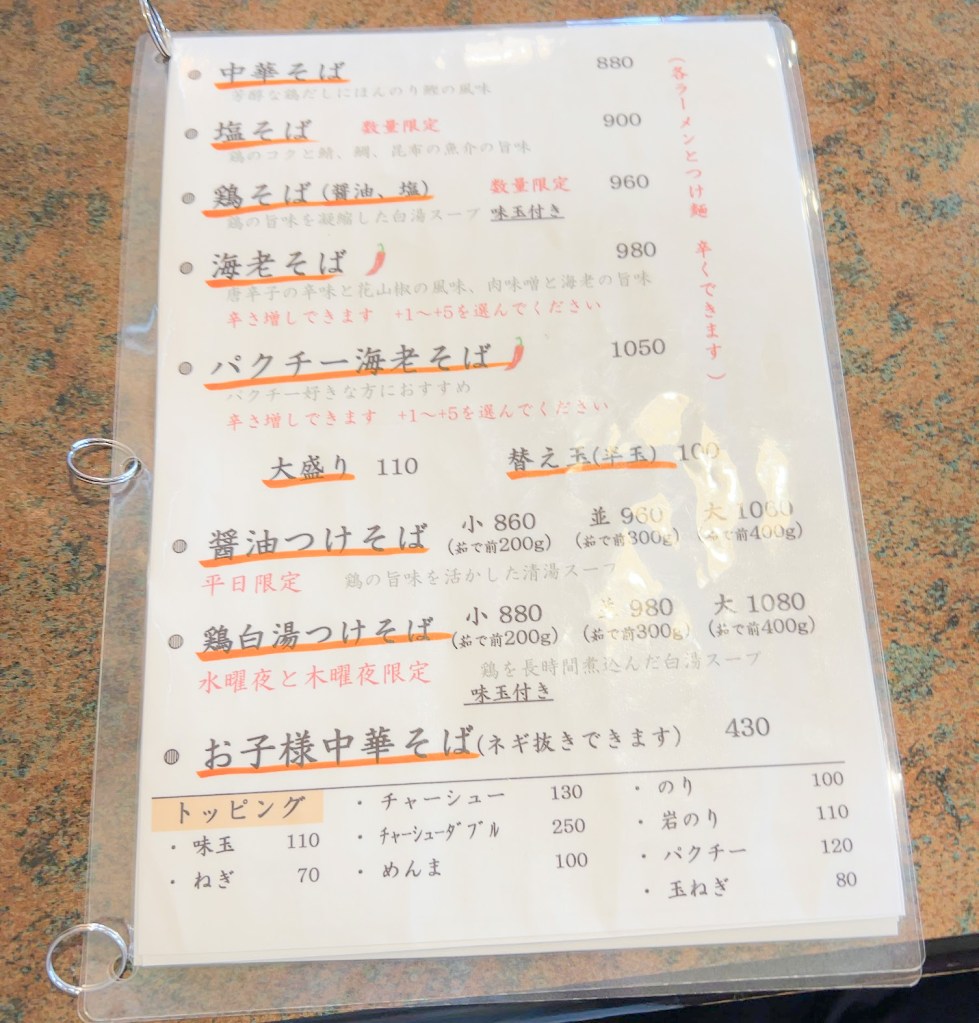 中華そば 880
芳醇な鶏だしにほんのり鰹の風味
塩そば 数量限定 900
鶏のコクと鯖、鯛、昆布の魚介の旨味
鶏そば(醤油、塩) 数量限定 960
鶏の旨味を凝縮した白湯スープ 味玉付き
海老そば 980
唐辛子の辛味と花山椒の風味、肉味噌と海老の旨味
辛さ増しできます +1～+5を選んでください
パクチー海老そば 1050
パクチー好きな方におすすめ
辛さ増しできます +1～+5を選んでください
(各ラーメンとつけ麺 辛くできます)
大盛り 110 替え玉(半玉) 100
醤油つけそば 小 860 並 960 大 1060
(茹で前200g) (茹で前300g) (茹で前400g)
平日限定 鶏の旨味を活かした清湯スープ
鶏白湯つけそば 小 880 並 980 大 1080
(茹で前200g) (茹で前300g) (茹で前400g)
水曜夜と木曜夜限定 鶏を長時間煮込んだ白湯スープ
味玉付き
お子様中華そば(ネギ抜きできます) 430
トッピング
・味玉 110
・ねぎ 70
・チャーシュー 130
・ﾁｬｰｼｭｰﾀﾞﾌﾞﾙ 250
・めんま 100
・のり 100
・岩のり 110
・パクチー 120
・玉ねぎ 80